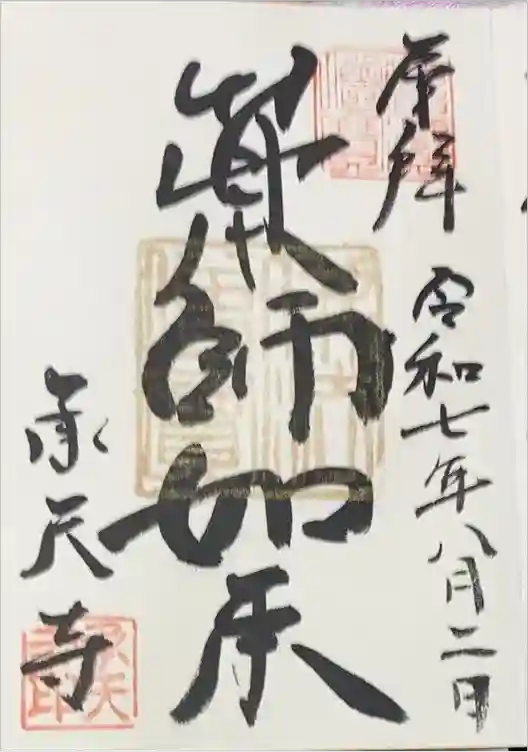 奉拝
令和七年八月二日
薬師如来
承天寺